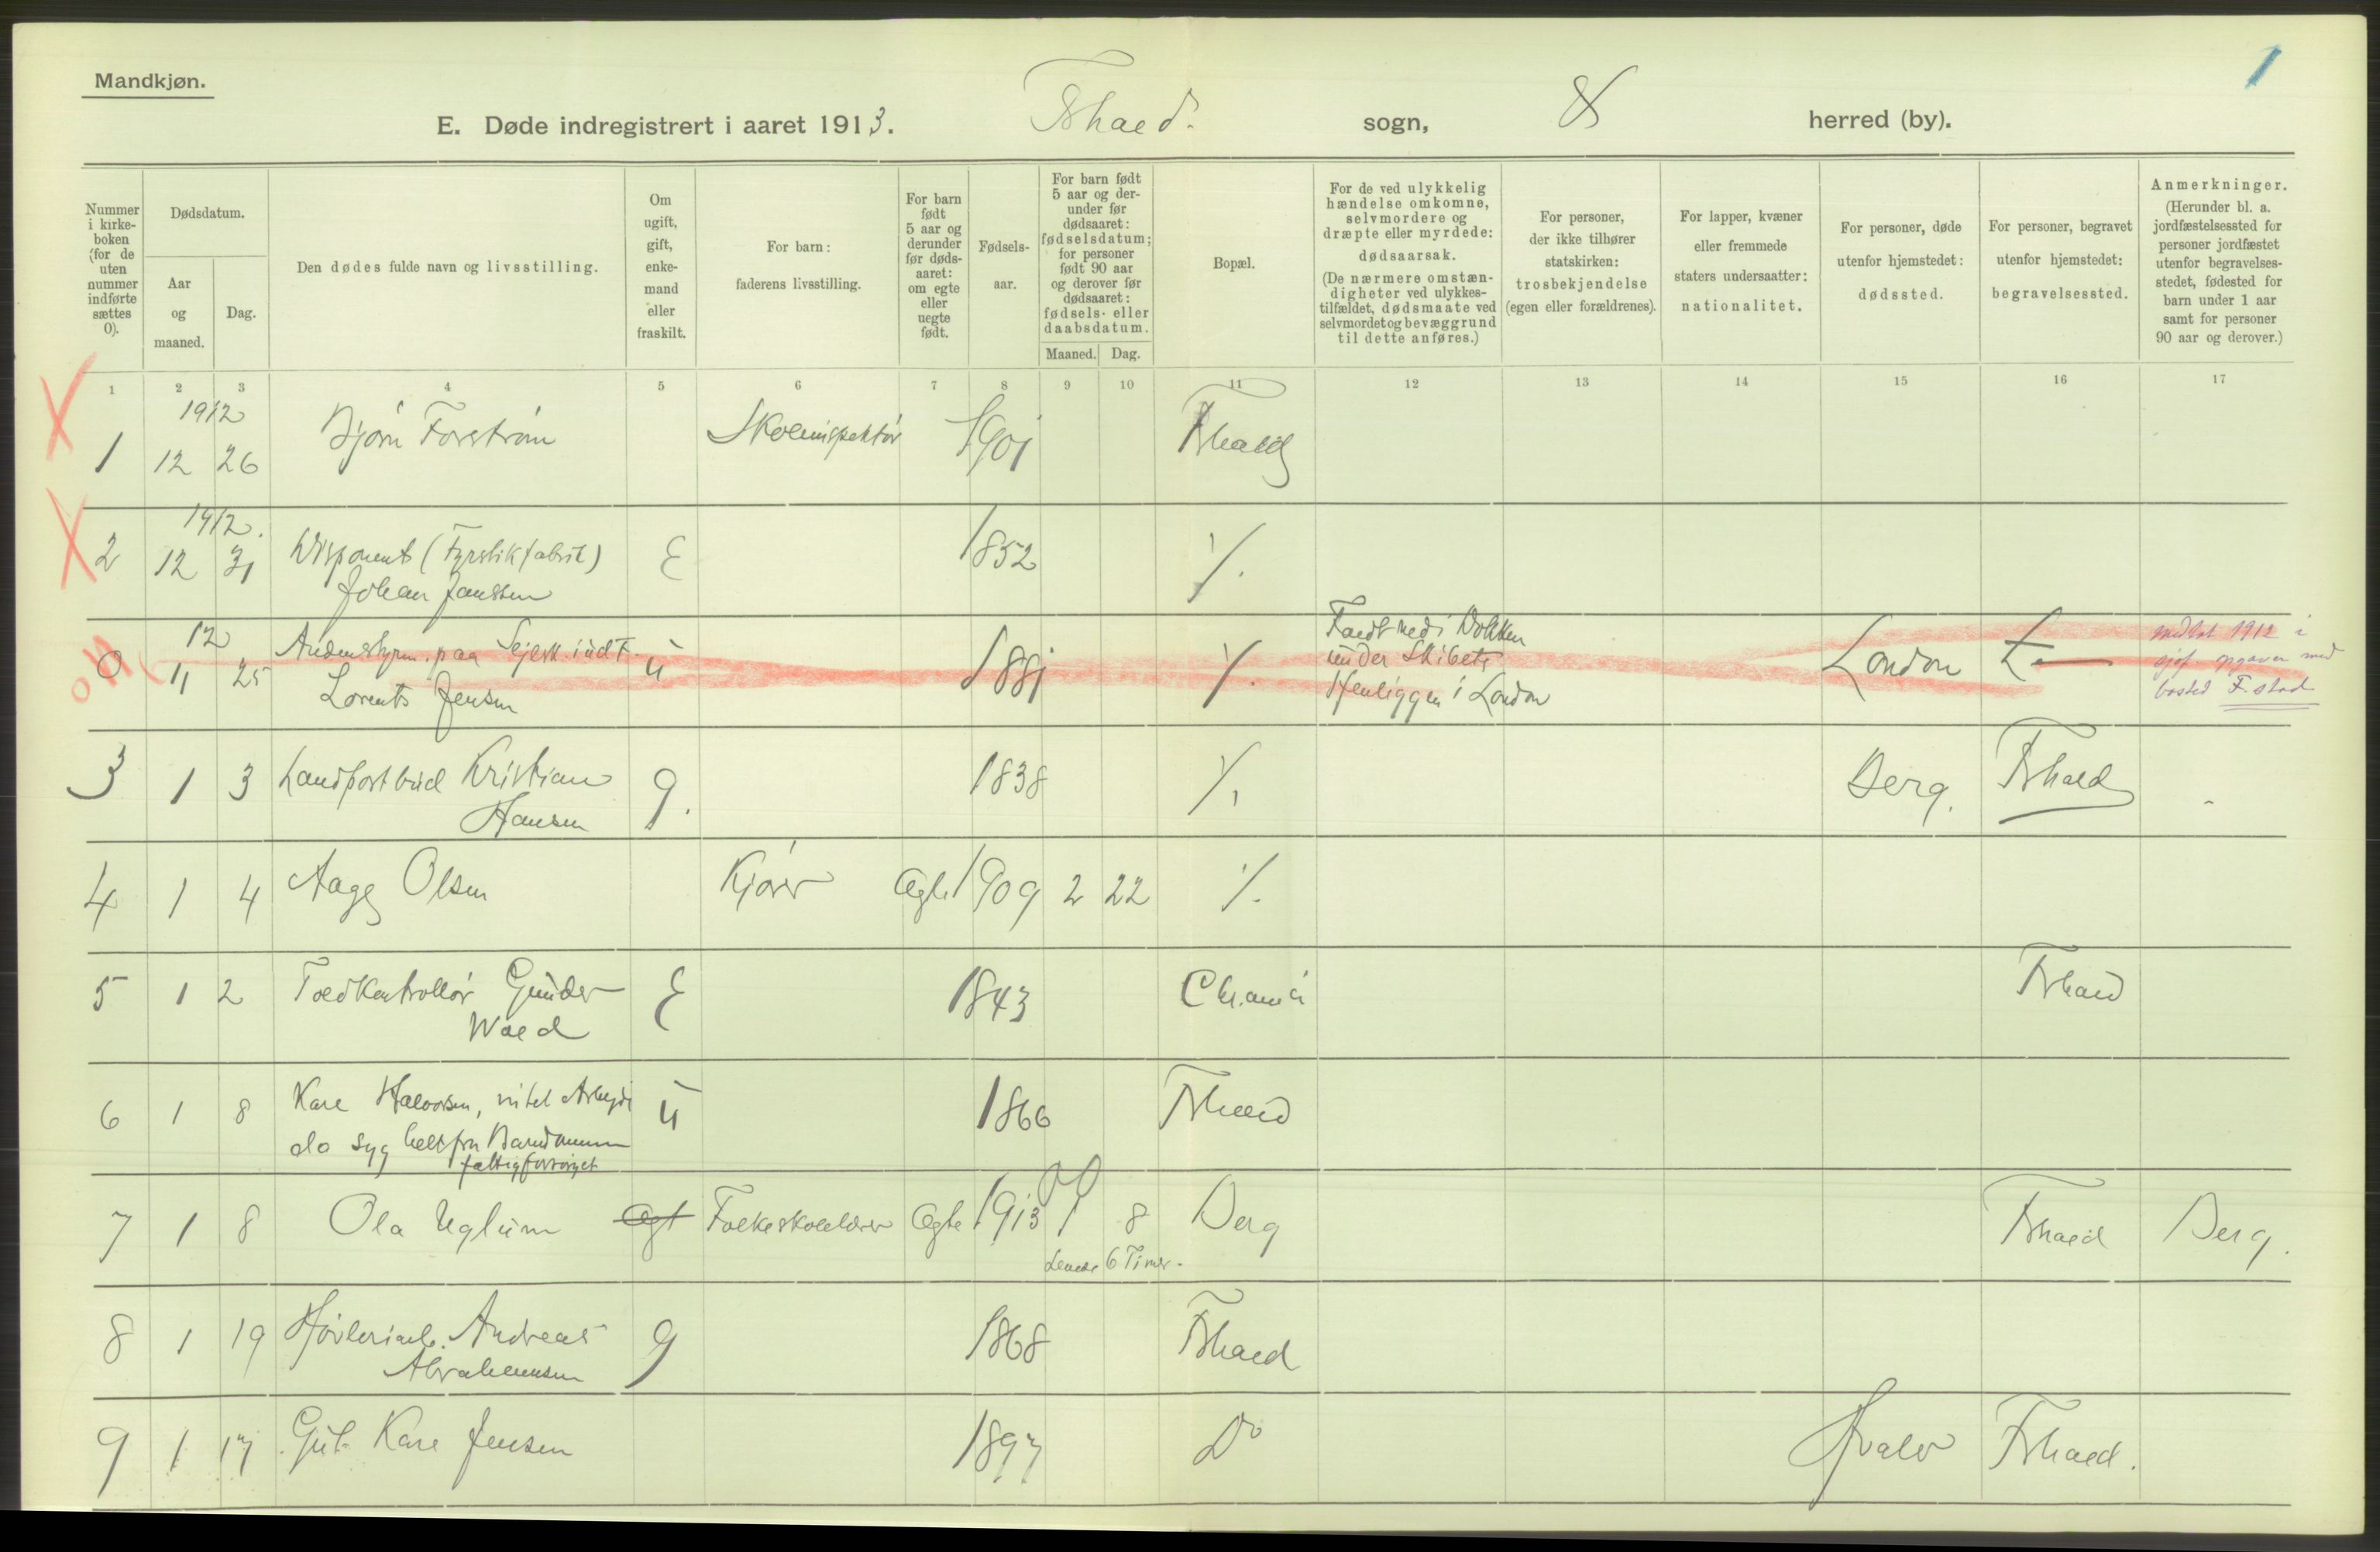 1
Mandkjøn.
E. Døde indregistrert i aaret 1913. Fshald. sogn, herred (by).
Nummer i kirke-boken (for de uten nummer indførte sættes 0).
Dødsdatum.
Aar og maaned.
Dag.
Den dødes fulde navn og livsstilling.
Om ugift, gift, enke-mand eller fraskilt.
For barn: faderens livsstilling.
For barn født 5 aar og derunder før døds-aaret: om egte eller uegte født.
Fødsels-aar.
For barn født 5 aar og der-under før dødsaaret: fødselsdatum; for personer født 90 aar og derover før dødsaaret: fødsels- eller daabsdatum.
Maaned. Dag.
Bopæl.
For de ved ulykkelig hændelse omkomne, selvmordere og dræpte eller myrdede: dødsaarsak. (De nærmere omstæn-digheter ved ulykkes-tilfældet, dødsmaate ved selvmordet og bevæggrund til dette anføres.)
For personer, der ikke tilhører statskirken: trosbekjendelse (egen eller forældrenes).
For lapper, kvæner eller fremmede staters undersaatter: nationalitet.
For personer, døde utenfor hjemstedet: dødssted.
For personer, begravet utenfor hjemstedet: begravelsessted.
Anmerkninger. (Herunder bl. a. jordfæstelsessted for personer jordfæstet utenfor begravelses-stedet, fødested for barn under 1 aar samt for personer 90 aar og derover.)
1 2 3 4 5 6 7 8 9 10 11 12 13 14 15 16 17
1912
1 12 26 Bjørn Forstrøm Skoleinspektør 1901 Fshald
1912.
2 12 31 Disponent (Fyrstikfabrik) E 1852 ./.
Johan Janssen
12
0 11 25 Andenstyrm. paa Sejlsk. i udf. u 1881 ./. Faldt ned i Dokken London
Lorents Jensen
under Skibets
Henliggen i London
meldt 1912 i
sjøf. opgaver med
bosted F.stad
3 1 3 Landpostbud Kristian g. 1838 ./. Berg. Fshald
Hansen
4 1 4 Aage Olsen Kjører Ægte 1909 2 22 ./.
5 1 2 Toldkontrollør Gunder E 1843 Chr.ania Fshald
Wold
6 1 8 Karl Halvorsen, intet Arbeide u 1866 Fshald
da syg helt fra Barndommen
fattigforsørget
7 1 8 Ola Uglum Ægt Folkeskolelærer Ægte 1913 1 8 Berg Fshald Berg.
Levede 6 Timer.
8 1 19 Høvleriarb. Andreas g 1868 Fshald
Abrahamsen
9 1 17 Gut. Karl Jensen 1897 Do Hvaler Fshald.